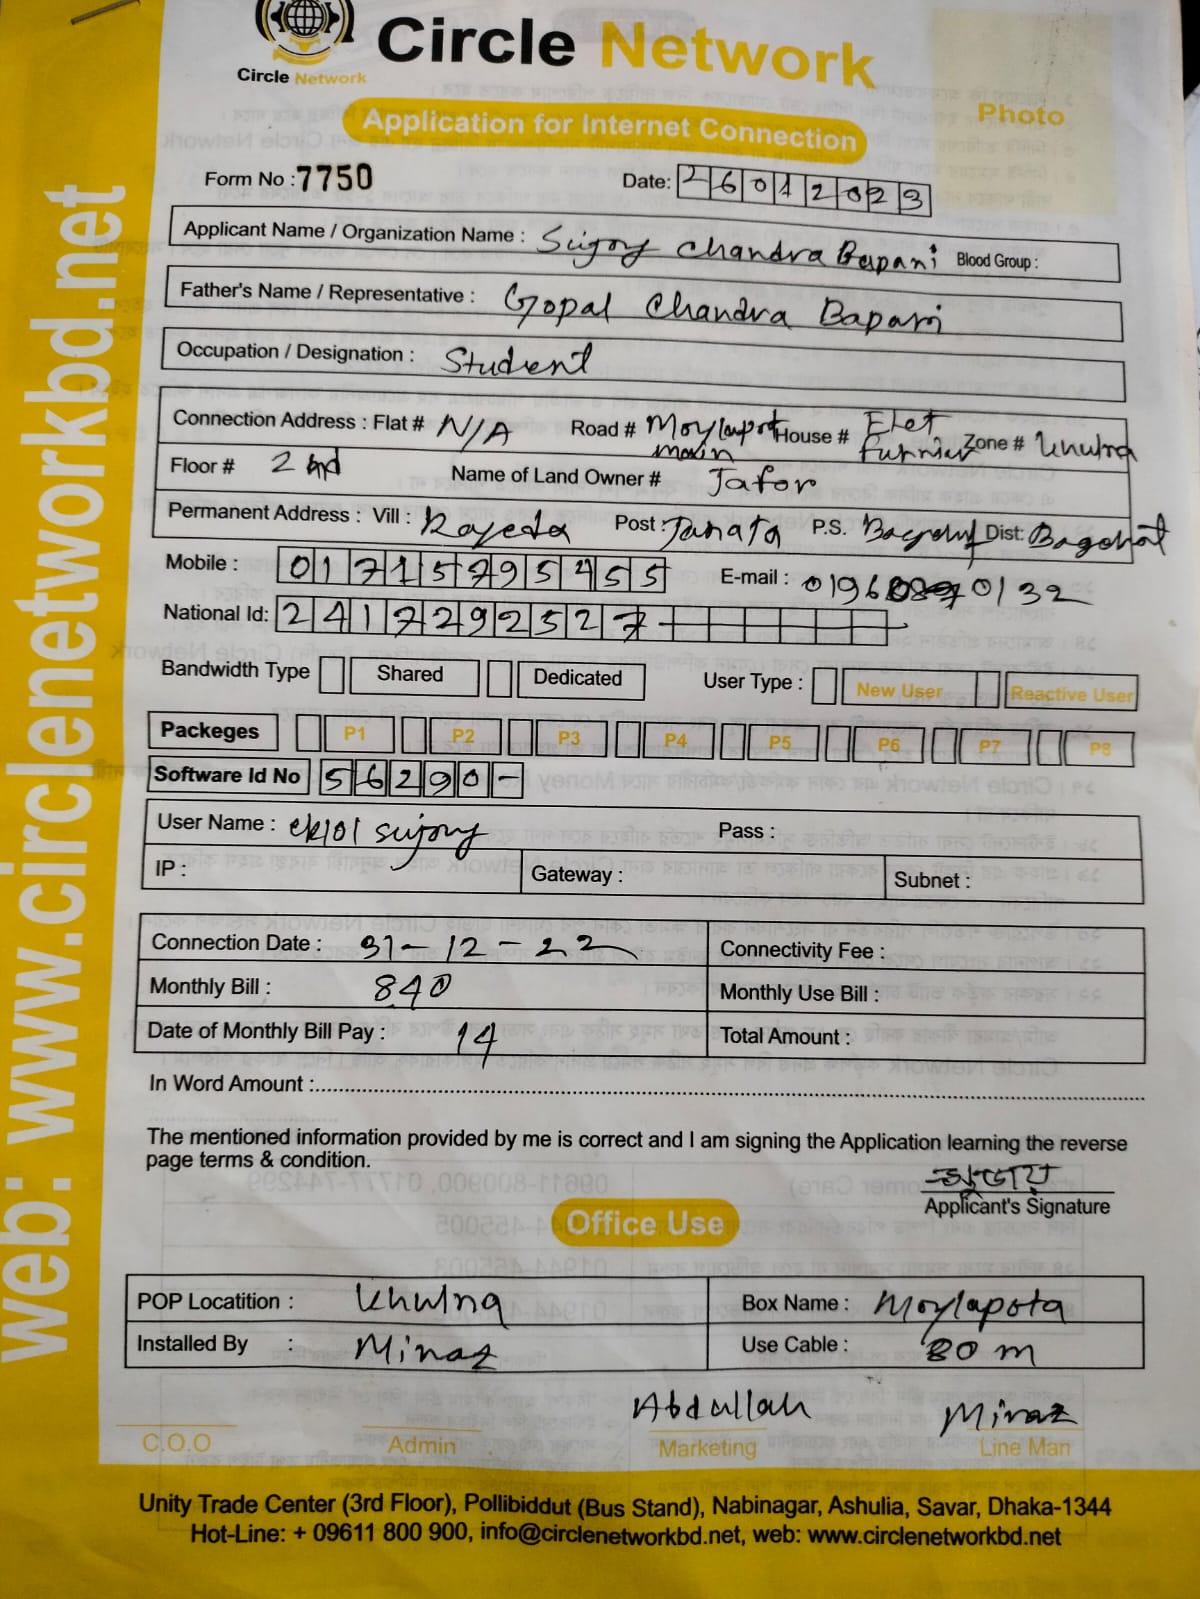 Circle Network
Circle Network
Photo
Application for Internet Connection
Form No : 7750 Date: 26012023
Applicant Name / Organization Name : Sujoy Chandra Bapari Blood Group :
Father's Name / Representative : Gopal Chandra Bapari
Occupation / Designation : Student
Connection Address : Flat # N/A Road # Moylapot main House # Zone # Khulna
Floor # 2nd Name of Land Owner # Jafor
Permanent Address : Vill : Post : P.S. Dist:
Mobile : 01715795455 E-mail : 0132
National Id: 2417292527
Bandwidth Type Shared Dedicated User Type : New User Reactive User
Packeges P1 P2 P3 P4 P5 P6 P7 P8
Software Id No 56290-
User Name : sujoy Pass :
IP : Gateway : Subnet :
Connection Date : 31-12-22 Connectivity Fee :
Monthly Bill : 840 Monthly Use Bill :
Date of Monthly Bill Pay : 14 Total Amount :
In Word Amount :
The mentioned information provided by me is correct and I am signing the Application learning the reverse
page terms & condition.
Applicant's Signature
Office Use
POP Locatition : Khulna Box Name : Moylapota
Installed By : Minaz Use Cable : 80 m
Abdullah Minaz
C.O.O Admin Marketing Line Man
Unity Trade Center (3rd Floor), Pollibiddut (Bus Stand), Nabinagar, Ashulia, Savar, Dhaka-1344
Hot-Line: + 09611 800 900, info@circlenetworkbd.net, web: www.circlenetworkbd.net
web: www.circlenetworkbd.net